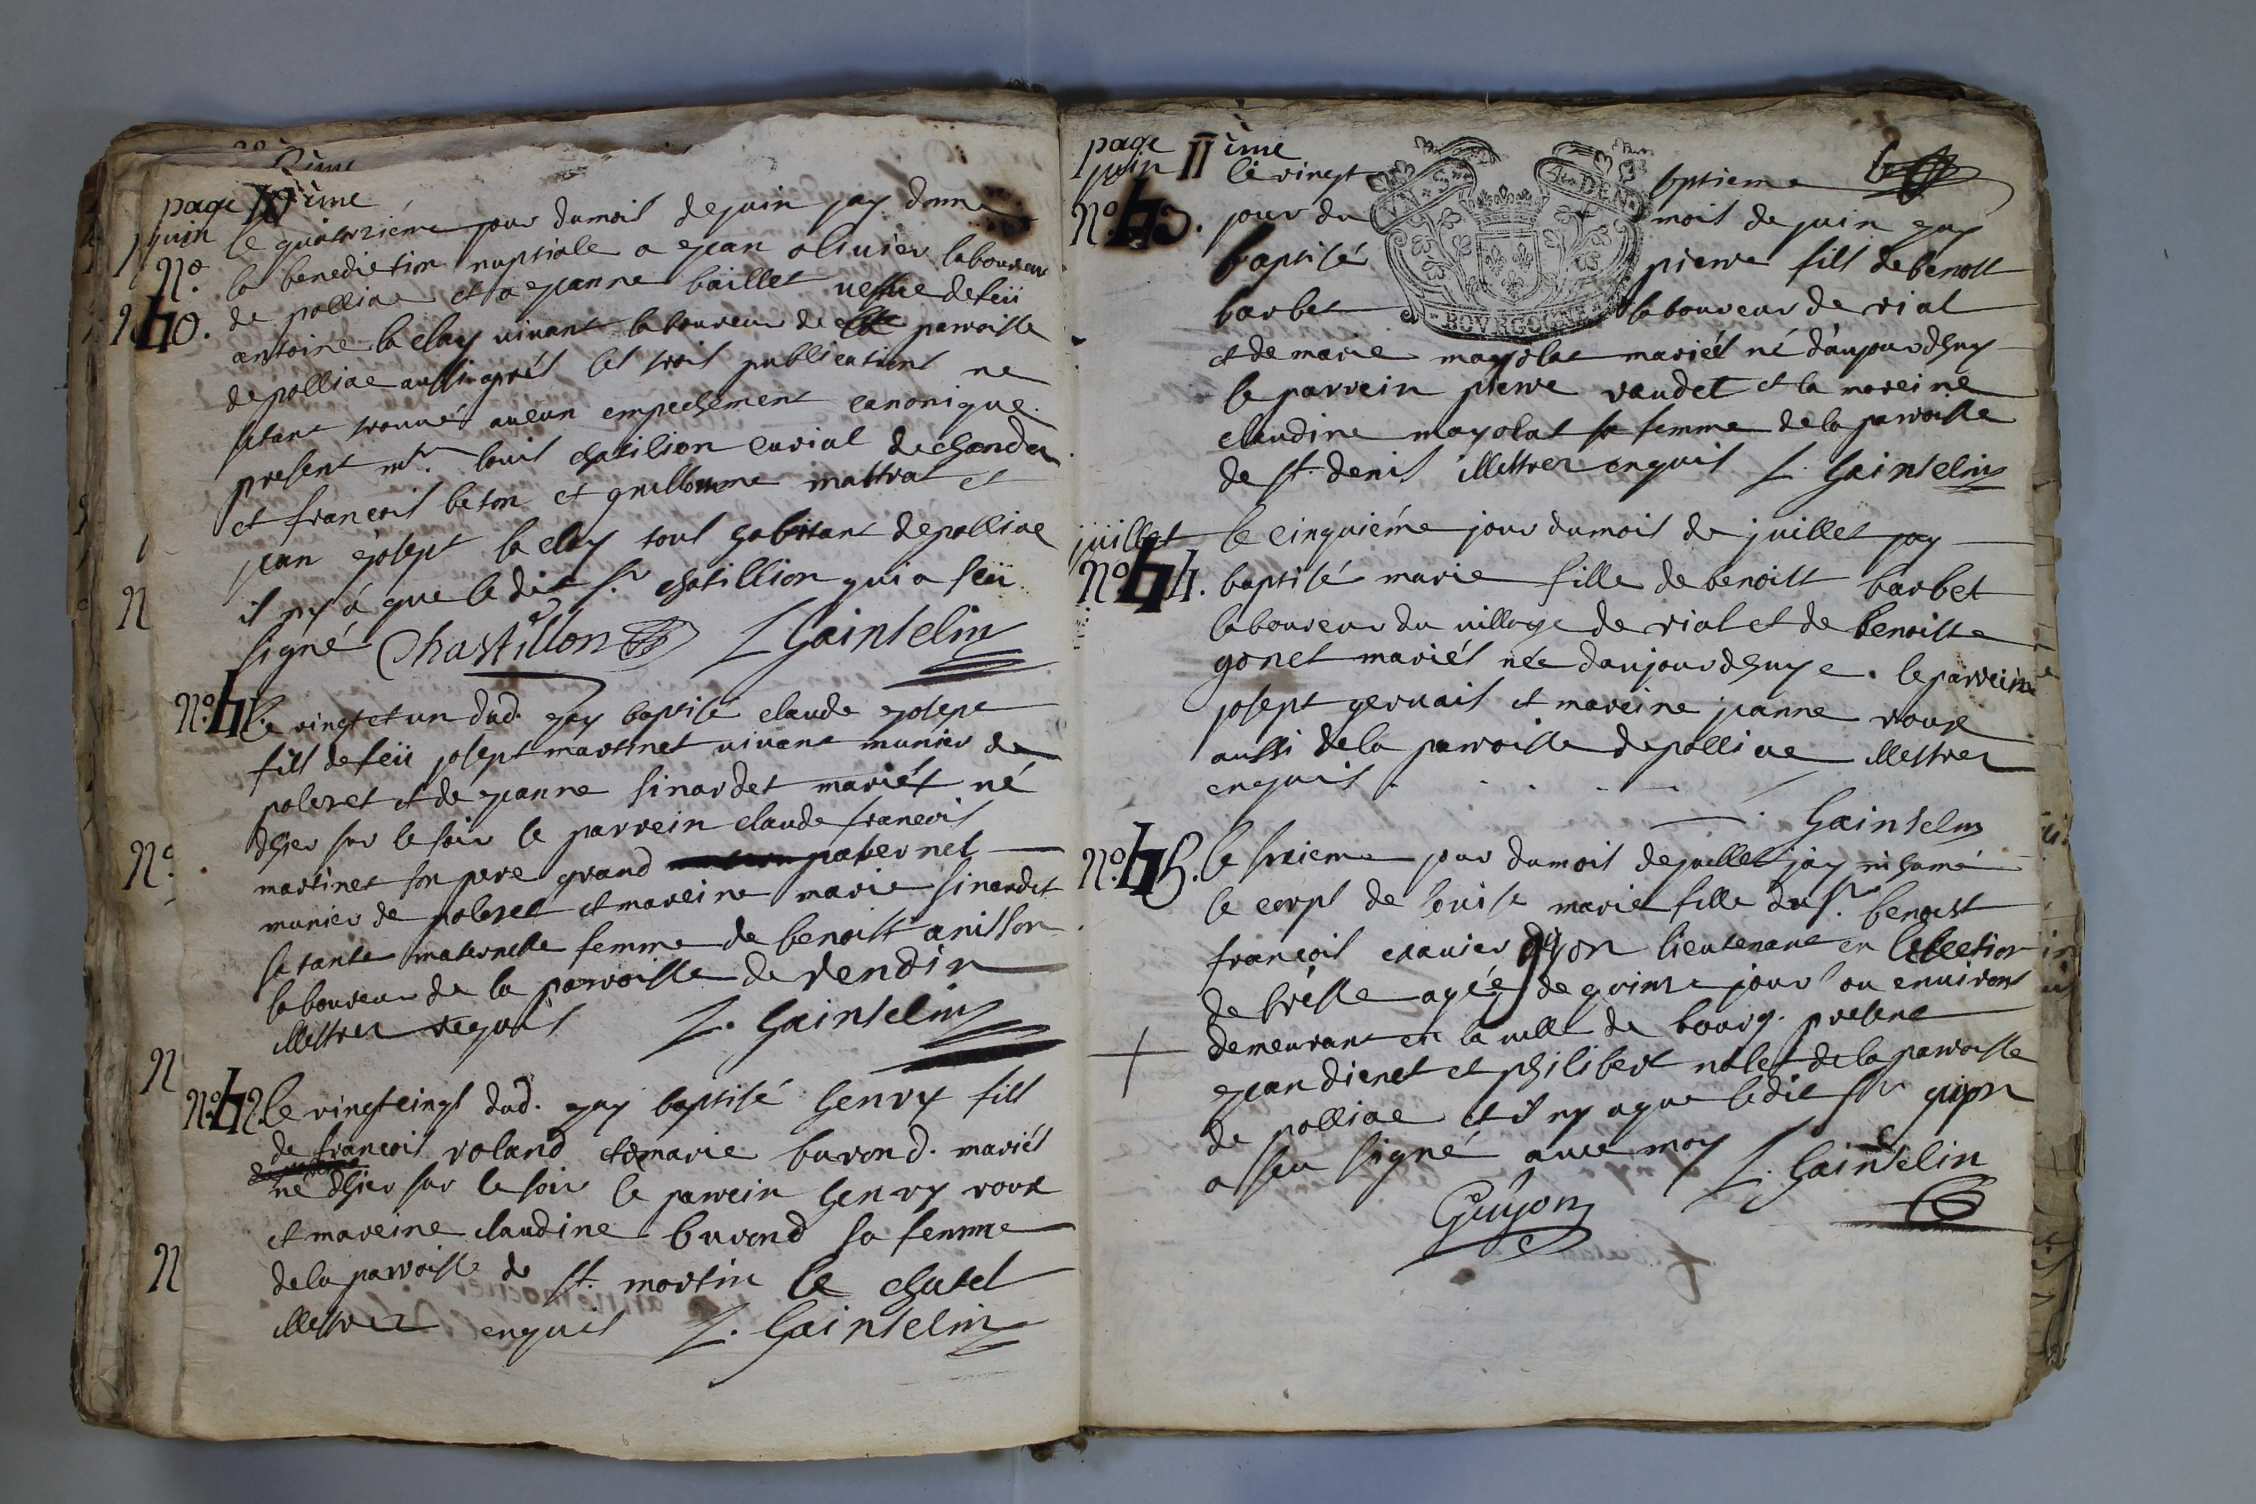 page 10 ième
juin le quatorziéme jour du mois de juin jay donné
No. la benediction nuptiale a jean olivier laboureur
40. de polliac et a jeanne baillet vefve de feü
antoine la clay vivant laboureur de parroisse
de polliac aussi après les trois publications ne
sétant trouvé aucun empechement canonique
present mtr. louis chatilion curial de
et francois beton et guillaume mattrat et
jean josept la clay tous habitant de polliac
il ny á que le dit sr. chatillion qui a seü
signé Chastillon L Gainselin
No. 41. le vingt et un dud. jay baptisé claude josept
fils de feü josept martinet vivant munier de
poleret et de jeanne sinardet mariés né
dhier sur le soir le parrein claude francois
martinet son pere grand paternel
munier de poleret et mareine marie sinardet
sa tante maternelle femme de benoist anisson
laboureur de la parroisse de vendin
illettrez réquis L. Gainselin
No. 42. le vingt cinqt dud. jay baptisé henry fils
de francois roland et marie burond. mariés
né dhier sur le soir le parrein henry roux
et mareine claudine burond sa femme
de la parroisse de st. martin le chatel
illettrez enquis L. Gainselin
page 11 ième
juin le vingt septieme
No. 43. jour du mois de juin jay
baptisé pierre fils de benoist
barbet laboureur de rial
GEN.
BOVRGOGNE
et de marie mayolat mariés né daujourdhuy
le parrein pierre vaudet et la mareine
claudine mayolat sa femme de la parroisse
de st. denis illettrez enquis L. Gainselin
juillet le cinquiéme jour du mois de juillet jay
No. 44. baptisé marie fille de benoist barbet
laboureur du village de rial et de benoiste
gonet mariés née daujourdhuye. le parrein
josept gervais et mareine janne roux
aussi de la parroisse de polliac illettrez
enquis.
Gainselin
No. 45. le jour du mois de juillet jay inhumé
le corps de louise marie fille du sr. benoist
francois exavier guyon lieutenant en lélection
de brésse agée de quinze jours ou environs
demeurant en la ville de bourg. present
jean dienet et philibert nalet de la parroisse
de polliac et il ny a que ledit sr guyon
a seu signé avec moy L. Gainselin
Guyon